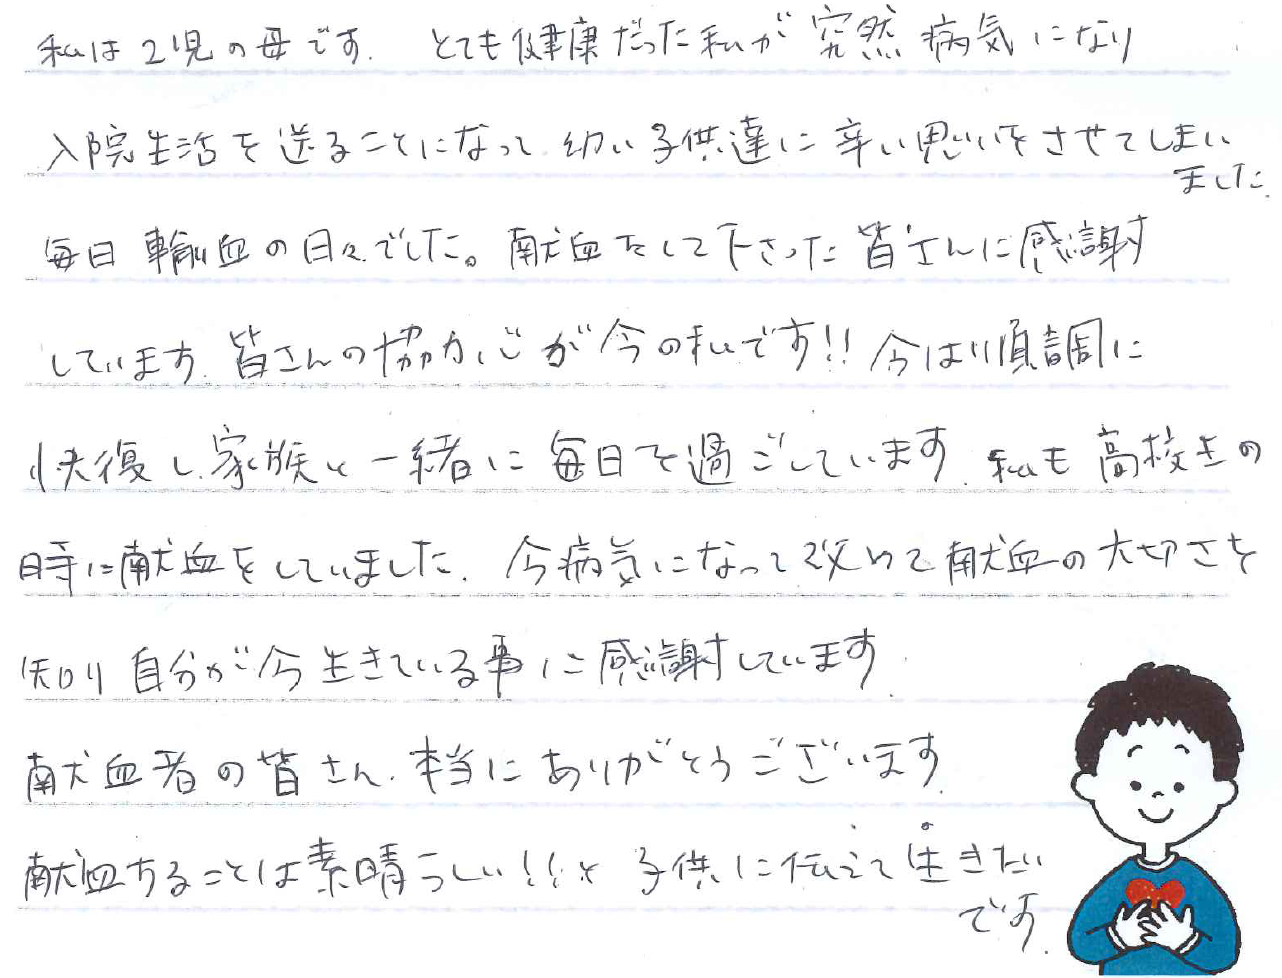 私は2児の母です. とても健康だった私が突然病気になり
入院生活を送ることになって 幼い子供達に辛い思いをさせてしまい
ました.
毎日輸血の日々でした。献血をして下さった皆さんに感謝
しています. 皆さんの協力心が今の私です!! 今は順調に
快復し、家族と一緒に毎日を過ごしています. 私も高校生の
時に献血をしていました. 今病気になって改めて献血の大切さを
知り 自分が今生きている事に感謝しています.
献血者の皆さん、本当にありがとうございます.
献血することは素晴らしい!!と子供に伝えて生きたい
です.